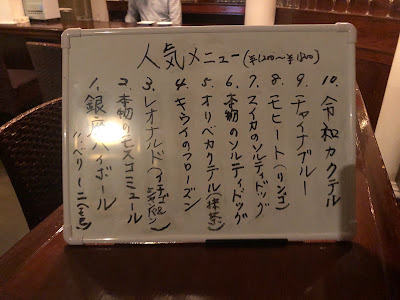 人気メニュー(¥1200〜
10. 令和カクテル
9. チャイナブルー
8. モヒート(リンゴ)
7. スイカのソルティドッグ
6. 本物のソルティドッグ
5. オリベカクテル(抹茶)
4. キウイのフローズン
3. レオナルド(イチゴシャンパン)
2. 本物のモスコミュール
1. 銀座ハイボール
11. ベリーニ(もも)